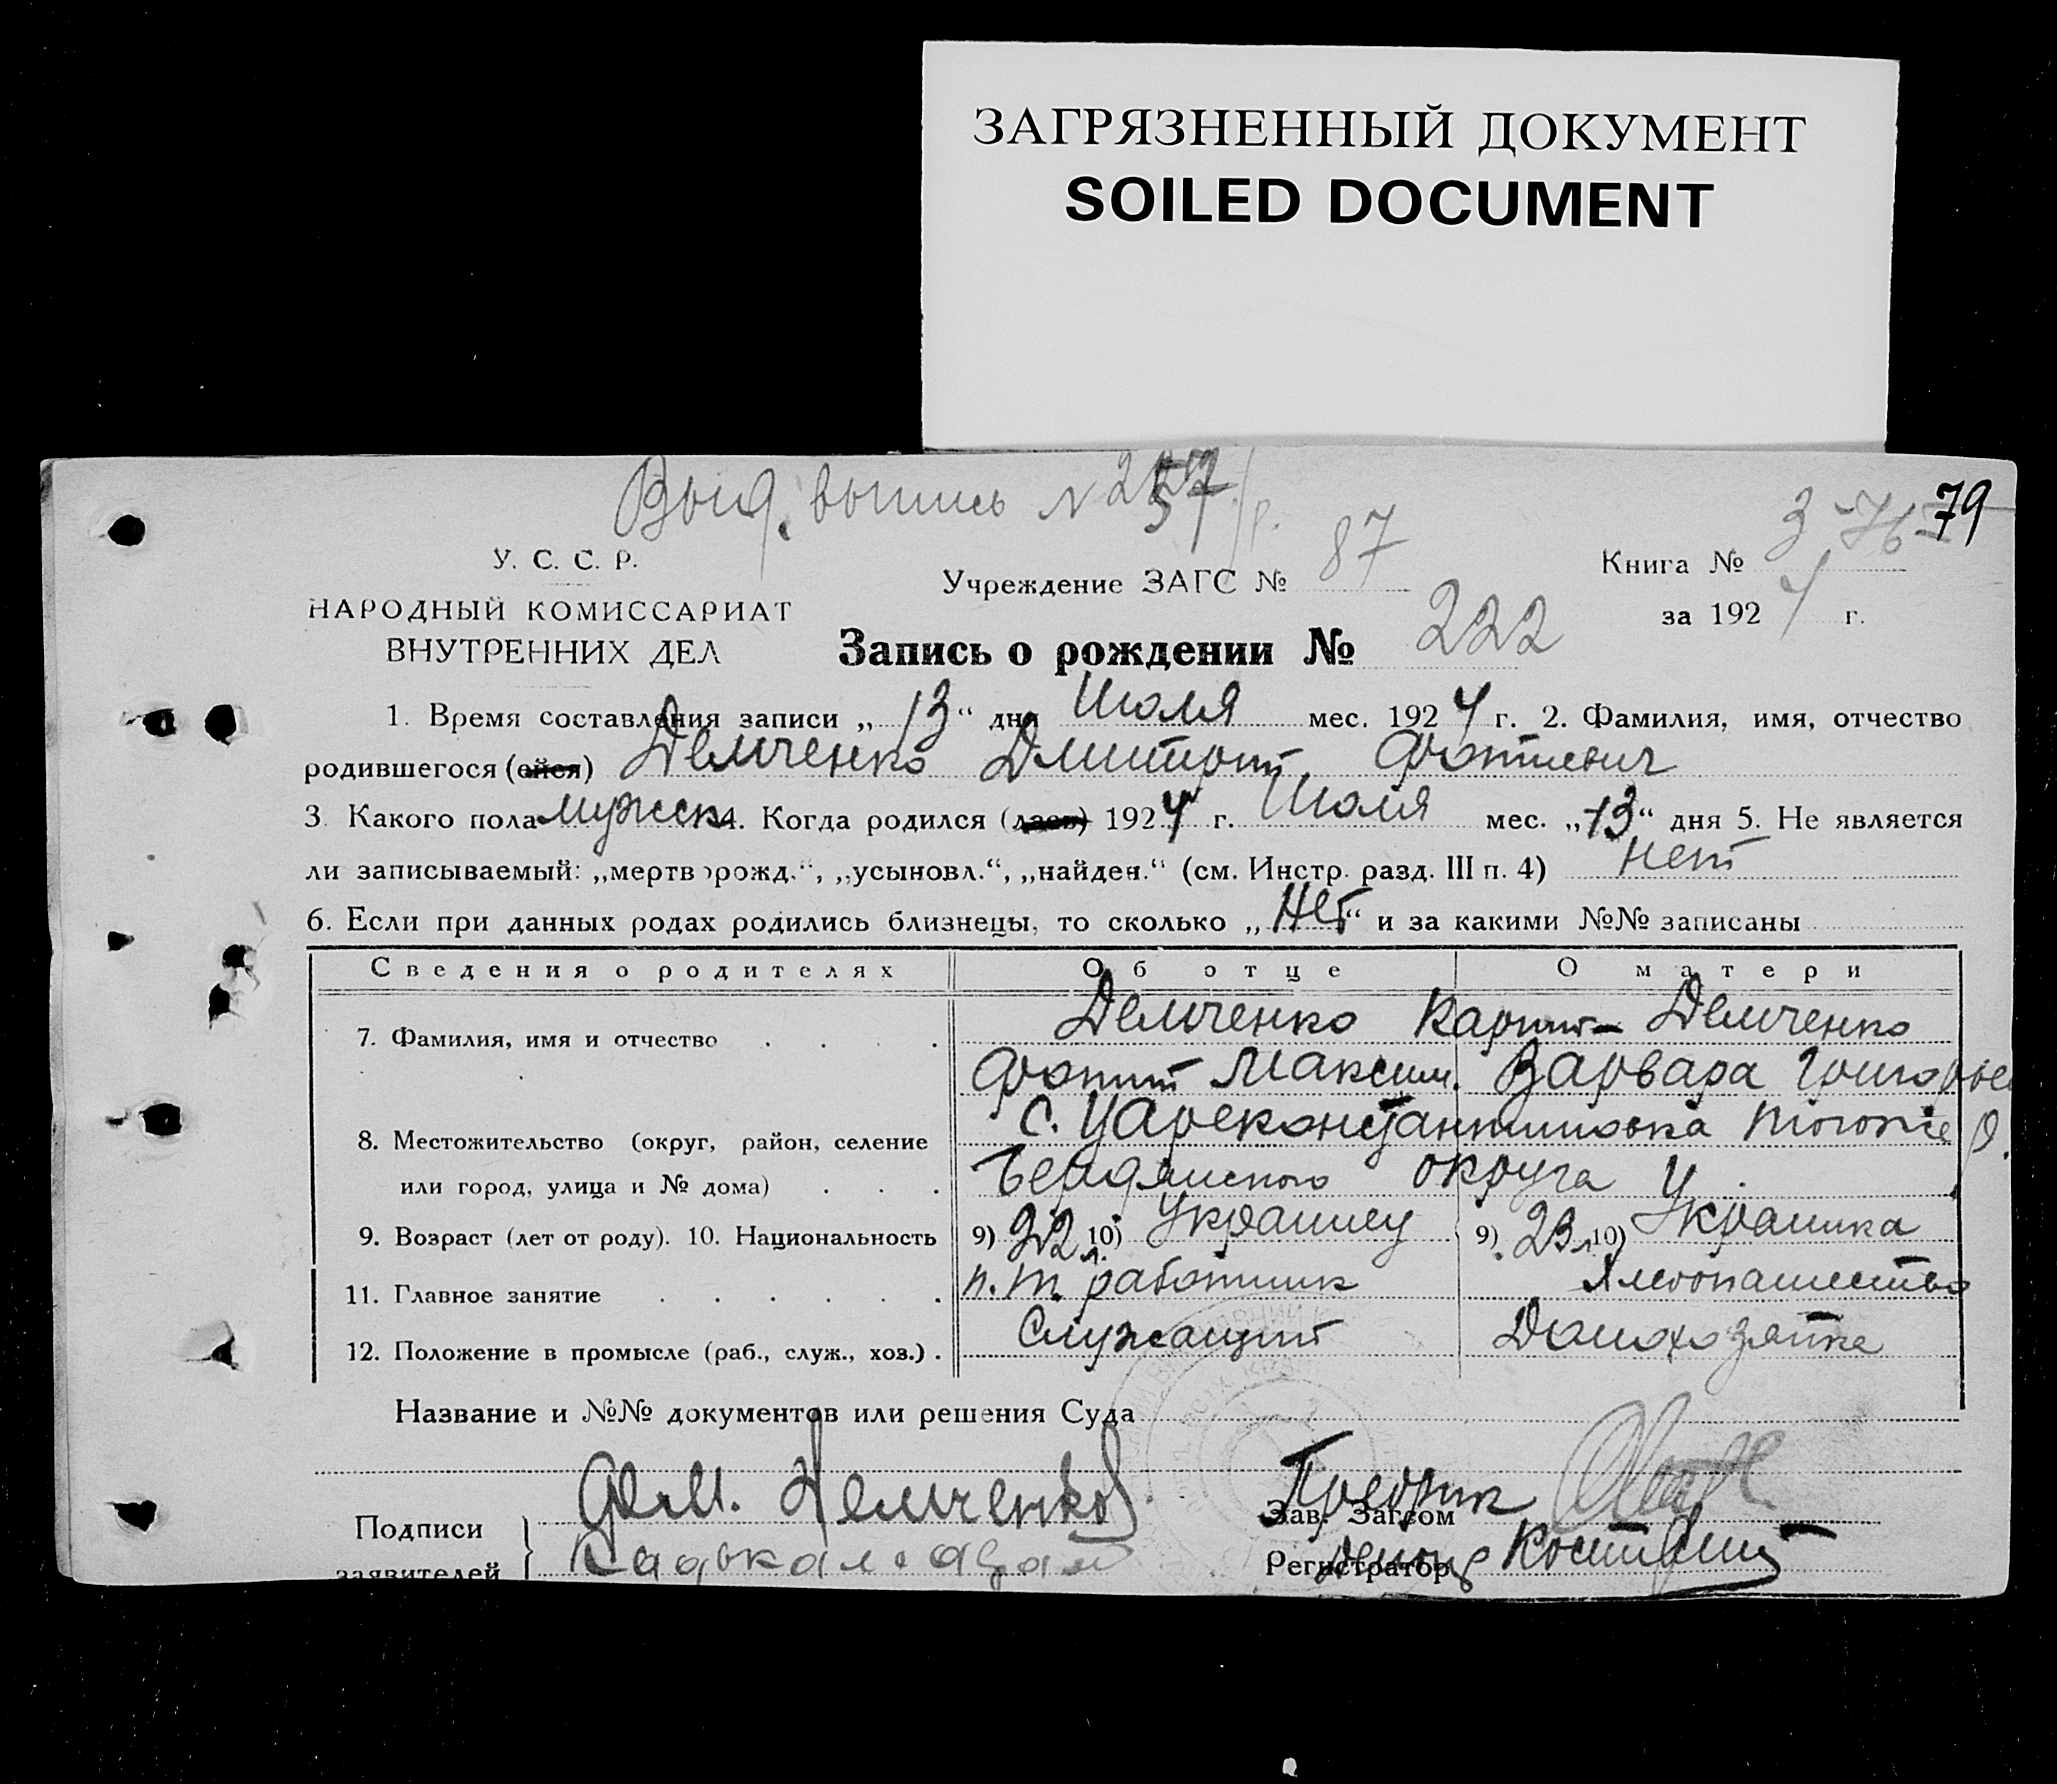 ЗАГРЯЗНЕННЫЙ ДОКУМЕНТ
SOILED DOCUMENT
Выд. выпись N
79
У. С. С. Р.
Учреждение ЗАГС № 87
Книга № 3
НАРОДНЫЙ КОМИССАРИАТ
ВНУТРЕННИХ ДЕЛ
за 1924 г.
Запись о рождении № 222
1. Время составления записи „13“ дня Июля мес. 1924 г. 2. Фамилия, имя, отчество
родившегося (ейся) Демченко Дмитрий Фотиевич
3. Какого пола мужск 4. Когда родился (лась) 1924 г. Июля мес. „13“ дня 5. Не является
ли записываемый: „мертворожд.“, „усыновл.“, „найден.“ (см. Инстр. разд. III п. 4) нет
6. Если при данных родах родились близнецы, то сколько „Нет“ и за какими №№ записаны
Сведения о родителях Об отце О матери
7. Фамилия, имя и отчество Демченко Демченко
Фотий Максим. Варвара Григорье
8. Местожительство (округ, район, селение с. Цареконстантиновка того же р.
или город, улица и № дома) Бердянского округа У
9. Возраст (лет от роду). 10. Национальность 9) 22 л. 10) Украинец 9) 23 л. 10) Украинка
11. Главное занятие п. т. работник Хлебопашество
12. Положение в промысле (раб., служ., хоз.) Служащий Домохозяйка
Название и №№ документов или решения Суда
Подписи Ф. М. Демченко Зав. Загсом
заявителей Регистратор